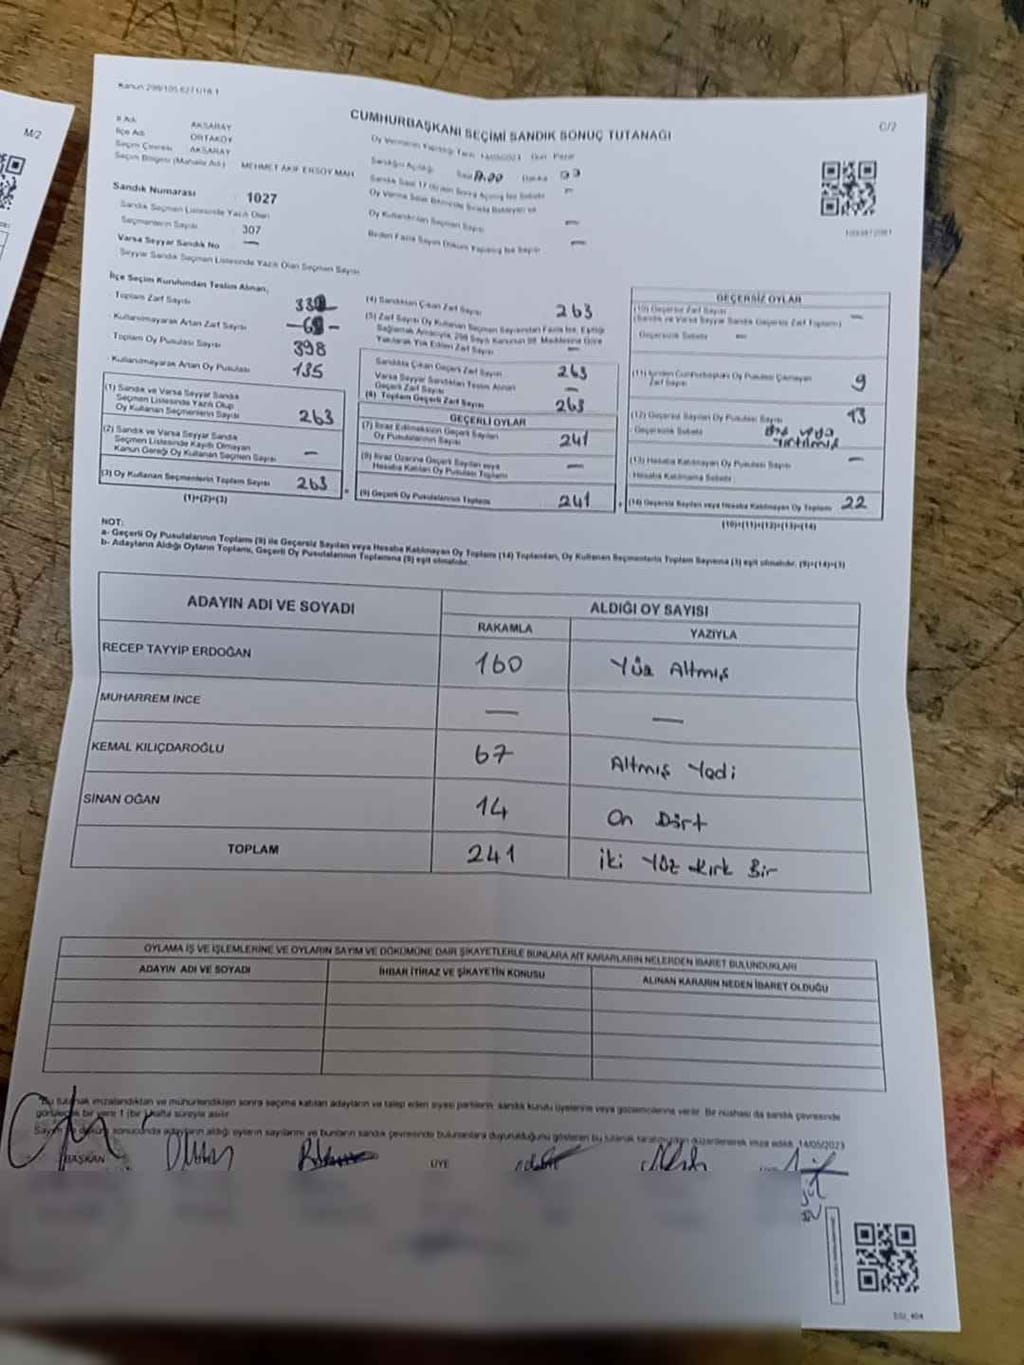 M/2
Kanun 298/105,6271/18.1
C/2
CUMHURBAŞKANI SEÇİMİ SANDIK SONUÇ TUTANAĞI
İl Adı AKSARAY
İlçe Adı ORTAKÖY
Seçim Çevresi AKSARAY
Seçim Bölgesi (Mahalle Adı) MEHMET AKİF ERSOY MAH.
Sandık Numarası 1027
Sandık Seçmen Listesinde Yazılı Olan
Seçmenlerin Sayısı 307
Varsa Seyyar Sandık No —
Seyyar Sandık Seçmen Listesinde Yazılı Olan Seçmen Sayısı
Oy Vermenin Yapıldığı Tarih 14/05/2023 Gün Pazar
Sandığın Açıldığı Saat 17.00 Dakika
Oy Kullandırılan Seçmen Sayısı —
İlçe Seçim Kurulundan Teslim Alınan;
Toplam Zarf Sayısı
Kullanılmayarak Artan Zarf Sayısı
Toplam Oy Pusulası Sayısı 398
Kullanılmayarak Artan Oy Pusulası 135
(1) Sandık ve Varsa Seyyar Sandık
Seçmen Listesinde Yazılı Olup
Oy Kullanan Seçmenlerin Sayısı 263
(2) Sandık ve Varsa Seyyar Sandık
Seçmen Listesinde Kayıtlı Olmayan
Kanun Gereği Oy Kullanan Seçmen Sayısı —
(3) Oy Kullanan Seçmenlerin Toplam Sayısı 263
(1)+(2)=(3)
(4) Sandıktan Çıkan Zarf Sayısı 263
(5) Zarf Sayısı Oy Kullanan Seçmen Sayısından Fazla İse, Eşitliği
Sağlamak Amacıyla, 298 Sayılı Kanunun 98. Maddesine Göre
Yakılarak Yok Edilen Zarf Sayısı —
Sandıkta Çıkan Geçerli Zarf Sayısı 263
Varsa Seyyar Sandıktan Teslim Alınan
Geçerli Zarf Sayısı —
(6) Toplam Geçerli Zarf Sayısı 263
GEÇERLİ OYLAR
(7) İtiraz Edilmeksizin Geçerli Sayılan
Oy Pusulalarının Sayısı 241
(8) İtiraz Üzerine Geçerli Sayılan veya
Hesaba Katılan Oy Pusulası Toplamı —
(9) Geçerli Oy Pusulalarının Toplamı 241
GEÇERSİZ OYLAR
(10) Geçersiz Zarf Sayısı —
(Sandık ve Varsa Seyyar Sandık Geçersiz Zarf Toplamı)
Geçersizlik Sebebi —
(11) İçinden Cumhurbaşkanı Oy Pusulası Çıkmayan
Zarf Sayısı 9
(12) Geçersiz Sayılan Oy Pusulası Sayısı 13
Geçersizlik Sebebi veya
Yırtılmış
(13) Hesaba Katılmayan Oy Pusulası Sayısı —
Hesaba Katılmama Sebebi
(14) Geçersiz Sayılan veya Hesaba Katılmayan Oy Toplamı 22
(10)+(11)+(12)+(13)=(14)
NOT:
a- Geçerli Oy Pusulalarının Toplamı (9) ile Geçersiz Sayılan veya Hesaba Katılmayan Oy Toplamı (14) Toplamları, Oy Kullanan Seçmenlerin Toplam Sayısına (3) eşit olmalıdır. (9)+(14)=(3)
b- Adayların Aldığı Oyların Toplamı, Geçerli Oy Pusulalarının Toplamına (9) eşit olmalıdır.
ADAYIN ADI VE SOYADI ALDIĞI OY SAYISI
RAKAMLA YAZIYLA
RECEP TAYYİP ERDOĞAN 160 Yüz Altmış
MUHARREM İNCE — —
KEMAL KILIÇDAROĞLU 67 Altmış Yedi
SİNAN OĞAN 14 On Dört
TOPLAM 241 İki Yüz Kırk Bir
OYLAMA İŞ VE İŞLEMLERİNE VE OYLARIN SAYIM VE DÖKÜMÜNE DAİR ŞİKAYETLERLE BUNLARA AİT KARARLARIN NELERDEN İBARET BULUNDUKLARI
ADAYIN ADI VE SOYADI İHBAR İTİRAZ VE ŞİKAYETİN KONUSU ALINAN KARARIN NEDEN İBARET OLDUĞU
Bu tutanak imzalandıktan ve mühürlendikten sonra seçime katılan adayların ve talep eden siyasi partilerin sandık kurulu üyelerine veya gözlemcilerine verilir. Bir nüshası da sandık çevresinde
görülecek bir yere 1 (bir) hafta süreyle asılır.
Sayım ve döküm sonucunda adayların aldığı oyların sayılarını ve bunların sandık çevresinde bulunanlara duyurulduğunu gösteren bu tutanak tarafımızdan düzenlenerek imza edildi. 14/05/2023
BAŞKAN ÜYE